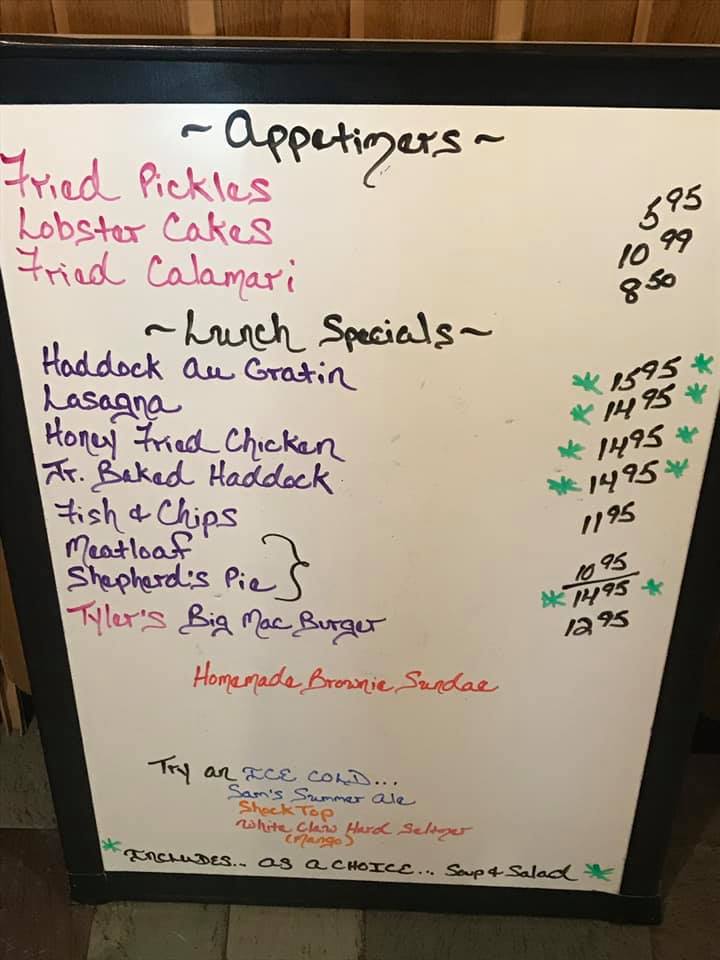 ~ Appetizers ~
Fried Pickles 5 95
Lobster Cakes 10 99
Fried Calamari 8 50
~ Lunch Specials ~
Haddock au Gratin * 15 95 *
Lasagna * 14 95 *
Honey Fried Chicken * 14 95 *
Jr. Baked Haddock * 14 95 *
Fish & Chips 11 95
Meatloaf 10 95
Shepherd's Pie * 14 95 *
Tyler's Big Mac Burger 12 95
Homemade Brownie Sundae
Try an ICE COLD...
Sam's Summer Ale
Shock Top
White Claw Hard Seltzer
(Mango)
* INCLUDES... AS A CHOICE... Soup & Salad *